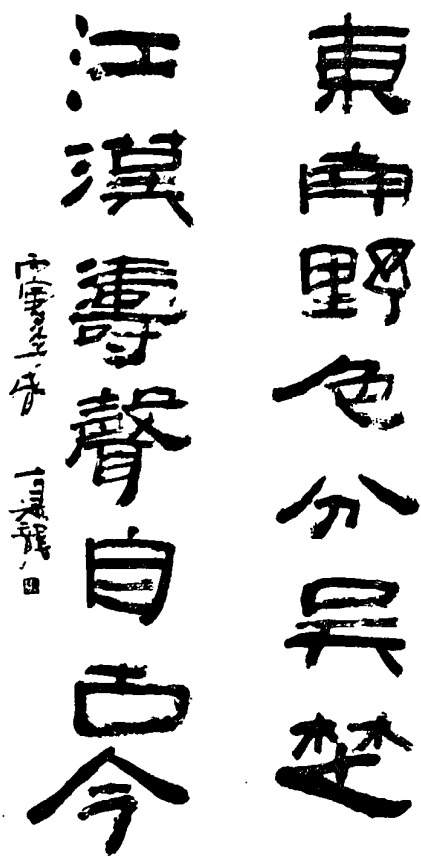 東南野色分吳楚
江漢濤聲自古今
丙寅